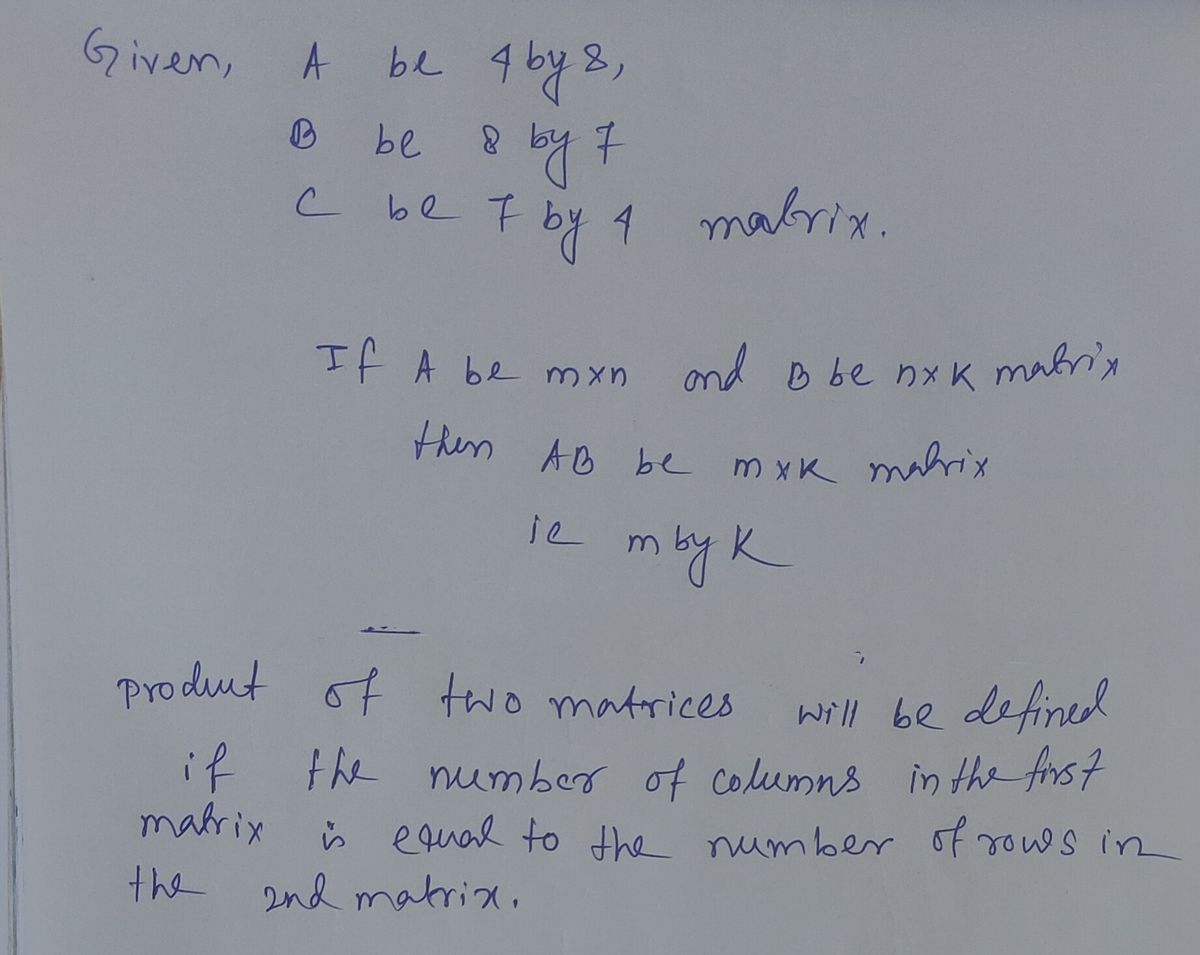 Given, A be 4 by 8,
B be 8 by 7
C be 7 by 4 matrix.
If A be m×n and B be n×k matrix
then AB be m×k matrix
ie m by k
product of two matrices will be defined
if the number of columns in the first
matrix is equal to the number of rows in
the 2nd matrix.